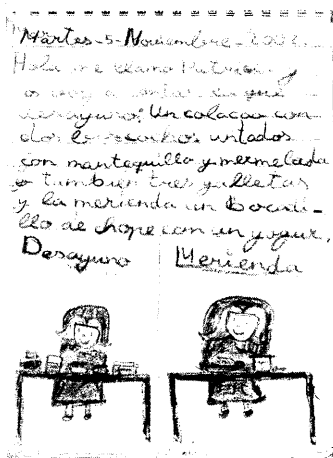 Martes-5-Noviembre-2002.
Hola me llamo Patricia y
os voy a contar lo que
desayuno: Un colacao con
dos bizcochos untados
con mantequilla y mermelada
o tambien tres galletas
y la merienda un bocadi-
llo de chope con un yogur.
Desayuno Merienda